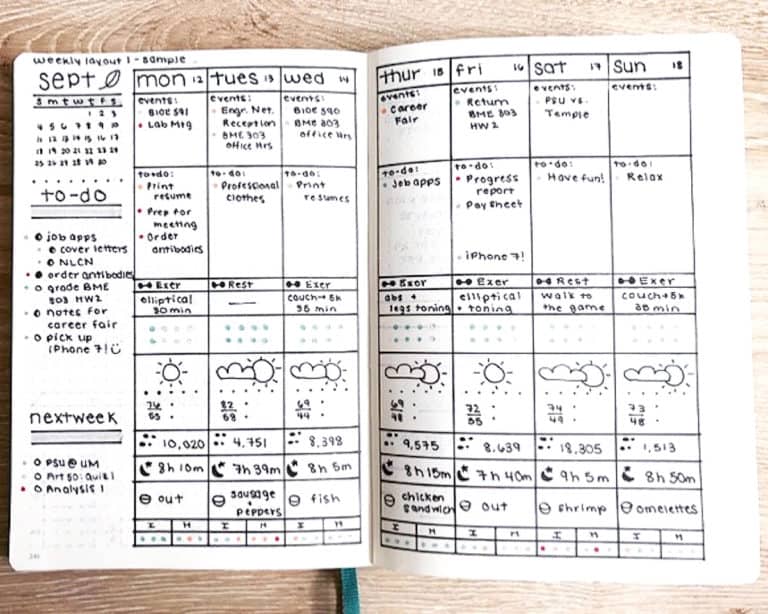 weekly layout 1 - sample
sept
s m t w t f s
1 2 3
4 5 6 7 8 9 10
11 12 13 14 15 16 17
18 19 20 21 22 23 24
25 26 27 28 29 30
to-do
job apps
cover letters
NLCN
order antibodies
grade BME
303 HW2
notes for
career fair
pick up
iPhone 7!
next week
PSU@UM
Analysis 1
mon 12
events:
BIOE 591
Lab Mtg
to-do:
Print
resume
Prep for
meeting
Order
antibodies
Exer
elliptical
30 min
10,020
8h 10m
out
I M
tues 13
events:
Engr. Net.
Reception
BME 303
office Hrs
to-do:
Professional
clothes
Rest
82
4,751
7h 39m
sausage
+
peppers
I M
wed 14
events:
BIOE 590
BME 303
office Hrs
to-do:
Print
resumes
Exer
couch→5k
35 min
69
44
8,398
8h 5m
fish
I M
thur 15
events:
Career
Fair
to-do:
Job apps
Exer
abs +
legs toning
69
48
9,575
8h 15m
chicken
sandwich
I M
fri 16
events:
Return
BME 303
HW 2
to-do:
Progress
report
Pay sheet
iPhone 7!
Exer
elliptical
+ toning
72
55
8,639
7h 40m
out
I M
sat 17
events:
PSU vs.
Temple
to-do:
Have fun!
Rest
walk to
the game
74
49
18,305
9h 5m
shrimp
I M
sun 18
events:
to-do:
Relax
Exer
couch→5k
35 min
73
48
1,513
8h 50m
omelettes
I M